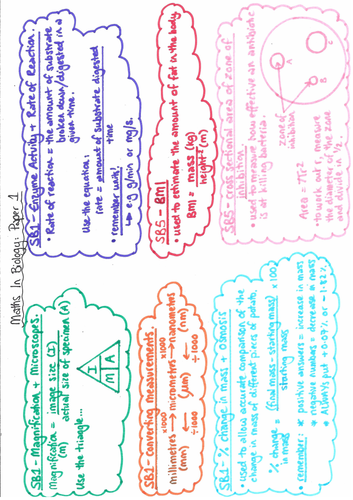 Maths In Biology: Paper 1
SB1 - Magnification + microscopes.
Magnification = image size (I)
(M) actual size of specimen (A)
Use the triangle...
I
M A
SB1 - Enzyme Activity + Rate of Reaction.
• Rate of reaction = the amount of substrate
broken down/digested in a
given time.
Use the equation:
rate = amount of substrate digested
time
• remember units!
↳ e.g g/min or mg/s.
SB1 - Converting measurements.
×1000 ×1000
millimetres → micrometres → nanometres
(mm) (μm) (nm)
÷1000 ÷1000
SB5 - BMI
• used to estimate the amount of fat in the body
BMI = mass (kg)
height² (m)
SB1 - % change in mass + Osmosis
• used to allow accurate comparison of the
change in mass of different pieces of potato.
% change = (final mass - starting mass) ×100
in mass starting mass
• remember: * positive answers = increase in mass
* negative numbers = decrease in mass
* ALWAYS put + or -
SB5 - cross sectional area of zone of
inhibition.
• used to measure how effective an antibiotic
is at killing bacteria.
A
B
C
zone of
inhibition
Area = πr²
• to work out r, measure
the diameter of the zone
and divide in ½.